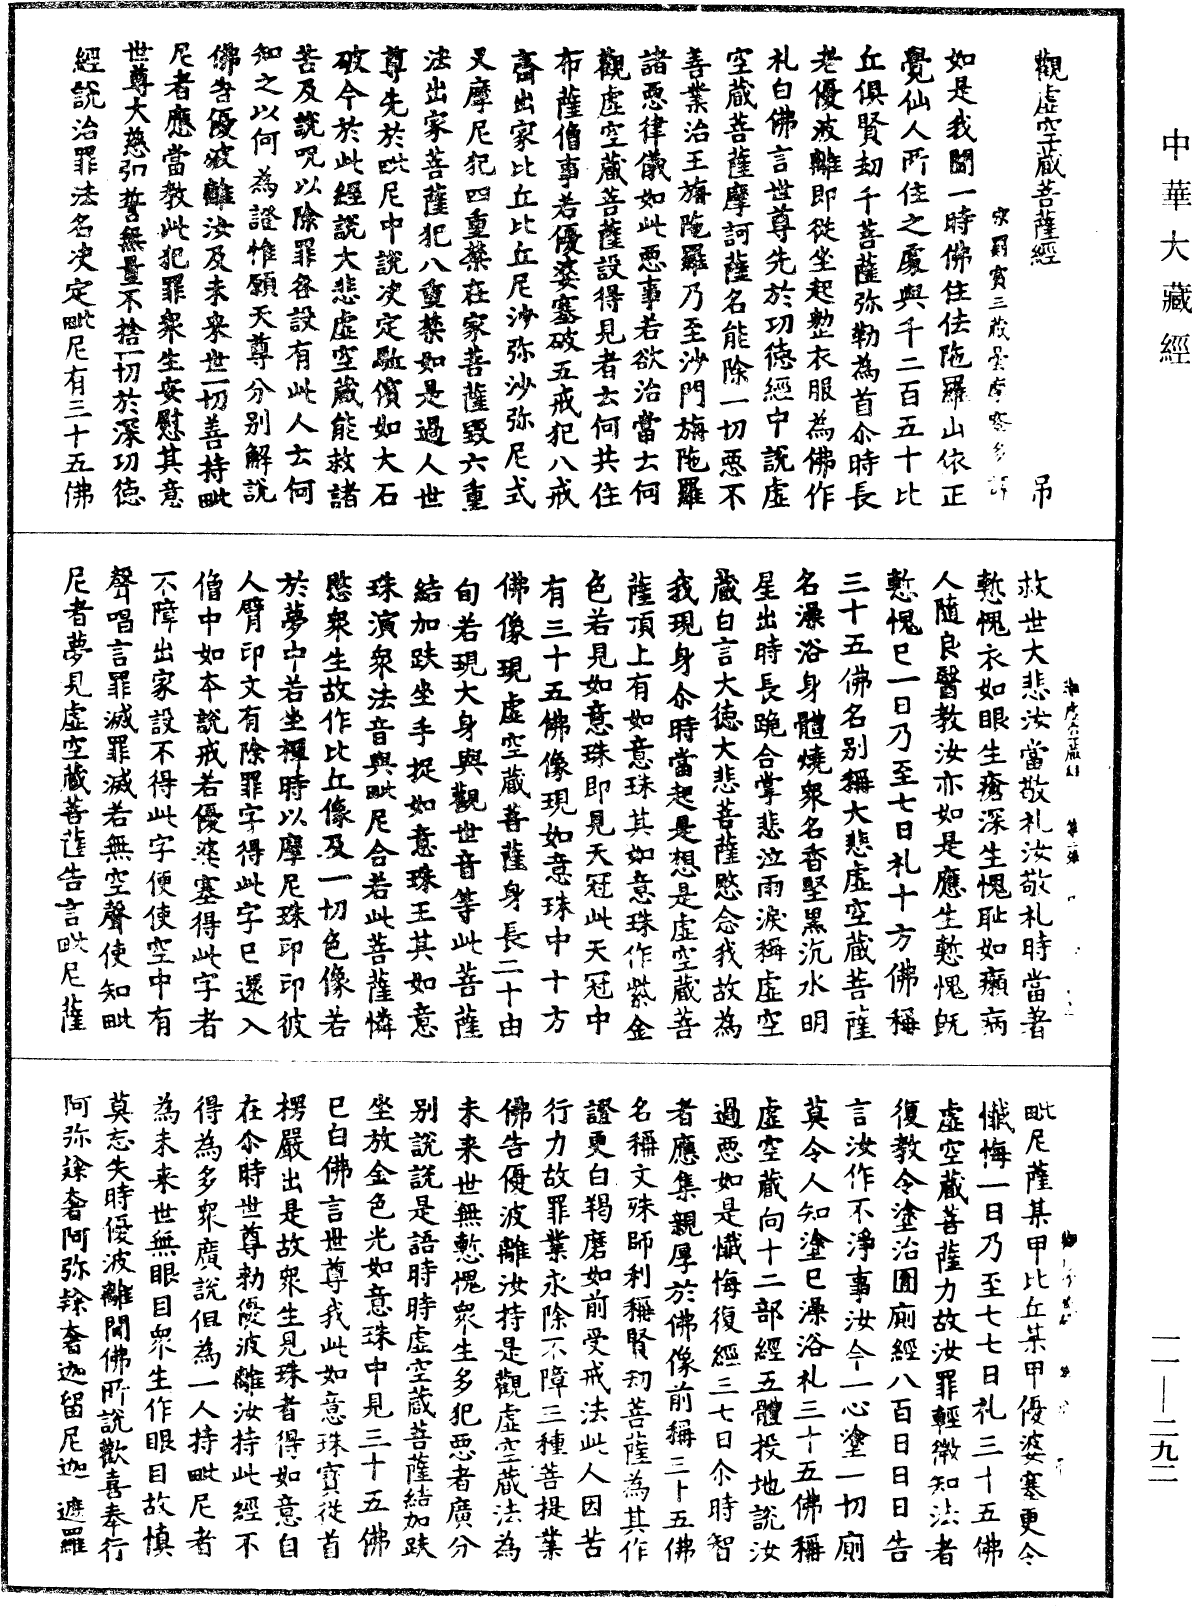 中華大藏經
觀虛空藏菩薩經 吊
宋罽賓三藏曇摩蜜多譯
如是我聞一時佛住佉陁羅山依正
覺仙人所住之處與千二百五十比
丘俱賢劫千菩薩弥勒為首尒時長
老優波離即從坐起整衣服為佛作
礼白佛言世尊先於功德經中說虛
空藏菩薩摩訶薩名能除一切惡不
善業治王旃陁羅乃至沙門旃陁羅
諸惡律儀如此惡事若欲治當云何
觀虛空藏菩薩設得見者云何共住
布薩僧事若優婆塞破五戒犯八戒
齋出家比丘比丘尼沙弥沙弥尼式
叉摩尼犯四重禁在家菩薩毀六重
法出家菩薩犯八重禁如是過人世
尊先於毗尼中說決定驅儐如大石
破今於此經說大悲虛空藏能救諸
苦及說呪以除罪咎設有此人云何
知之以何為證惟願天尊分別解說
佛告優波離汝及未来世一切善持毗
尼者應當教此犯罪衆生安慰其意
世尊大慈弘誓無量不捨一切於深功德
經說治罪法名決定毗尼有三十五佛
救世大悲汝當敬礼汝敬礼時當著
慙愧衣如眼生瘡深生愧耻如癩病
人隨良醫教汝亦如是應生慙愧既
慙愧已一日乃至七日礼十方佛稱
三十五佛名别稱大悲虛空藏菩薩
名澡浴身體燒衆名香堅黑沉水明
星出時長跪合掌悲泣雨淚稱虛空
藏白言大德大悲菩薩愍念我故為
我現身尒時當起是想是虛空藏菩
薩頂上有如意珠其如意珠作紫金
色若見如意珠即見天冠此天冠中
有三十五佛像現如意珠中十方
佛像現虛空藏菩薩身長二十由
旬若現大身與觀世音等此菩薩
結加趺坐手捉如意珠王其如意
珠演衆法音與毗尼合若此菩薩憐
愍衆生故作比丘像及一切色像若
於夢中若坐禪時以摩尼珠印印彼
人臂印文有除罪字得此字已還入
僧中如本說戒若優婆塞得此字者
不障出家設不得此字便使空中有
聲唱言罪滅罪滅若無空聲使知毗
尼者夢見虛空藏菩薩告言毗尼薩
毗尼薩某甲比丘某甲優婆塞更令
懺悔一日乃至七七日礼三十五佛
虛空藏菩薩力故汝罪輕微知法者
復教令塗治圊廁經八百日日日告
言汝作不淨事汝今一心塗一切廁
莫令人知塗已澡浴礼三十五佛稱
虛空藏向十二部經五體投地說汝
過惡如是懺悔復經三七日尒時智
者應集親厚於佛像前稱三十五佛
名稱文殊師利稱賢劫菩薩為其作
證更白羯磨如前受戒法此人因苦
行力故罪業永除不障三種菩提業
佛告優波離汝持是觀虛空藏法為
未来世無慙愧衆生多犯惡者廣分
别說說是語時時虛空藏菩薩結加趺
坐放金色光如意珠中見三十五佛
已白佛言世尊我此如意珠寶從首
楞嚴出是故衆生見珠者得如意自
在尒時世尊勑優波離汝持此經不
得為多衆廣說但為一人持毗尼者
為未来世無眼目衆生作眼目故慎
莫忘失時優波離聞佛所說歡喜奉行
阿弥䤷奢阿弥䤷奢迦留尼迦 遮羅
一一—二九二